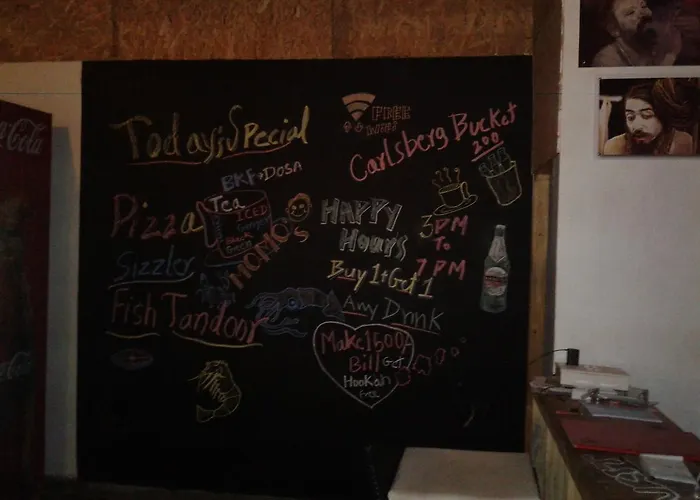 Today's Special
FREE
WIFI
Carlsberg Bucket
200
BKF→DOSA
Pizza
Tea
ICED
Black
Green
MOMO'S
Sizzler
Fish Tandoor
HAPPY
Hours
3PM
To
7PM
Buy 1+Get 1
Any Drink
Make 1500/-
Bill Get
Hookah
Free
Coca-Cola